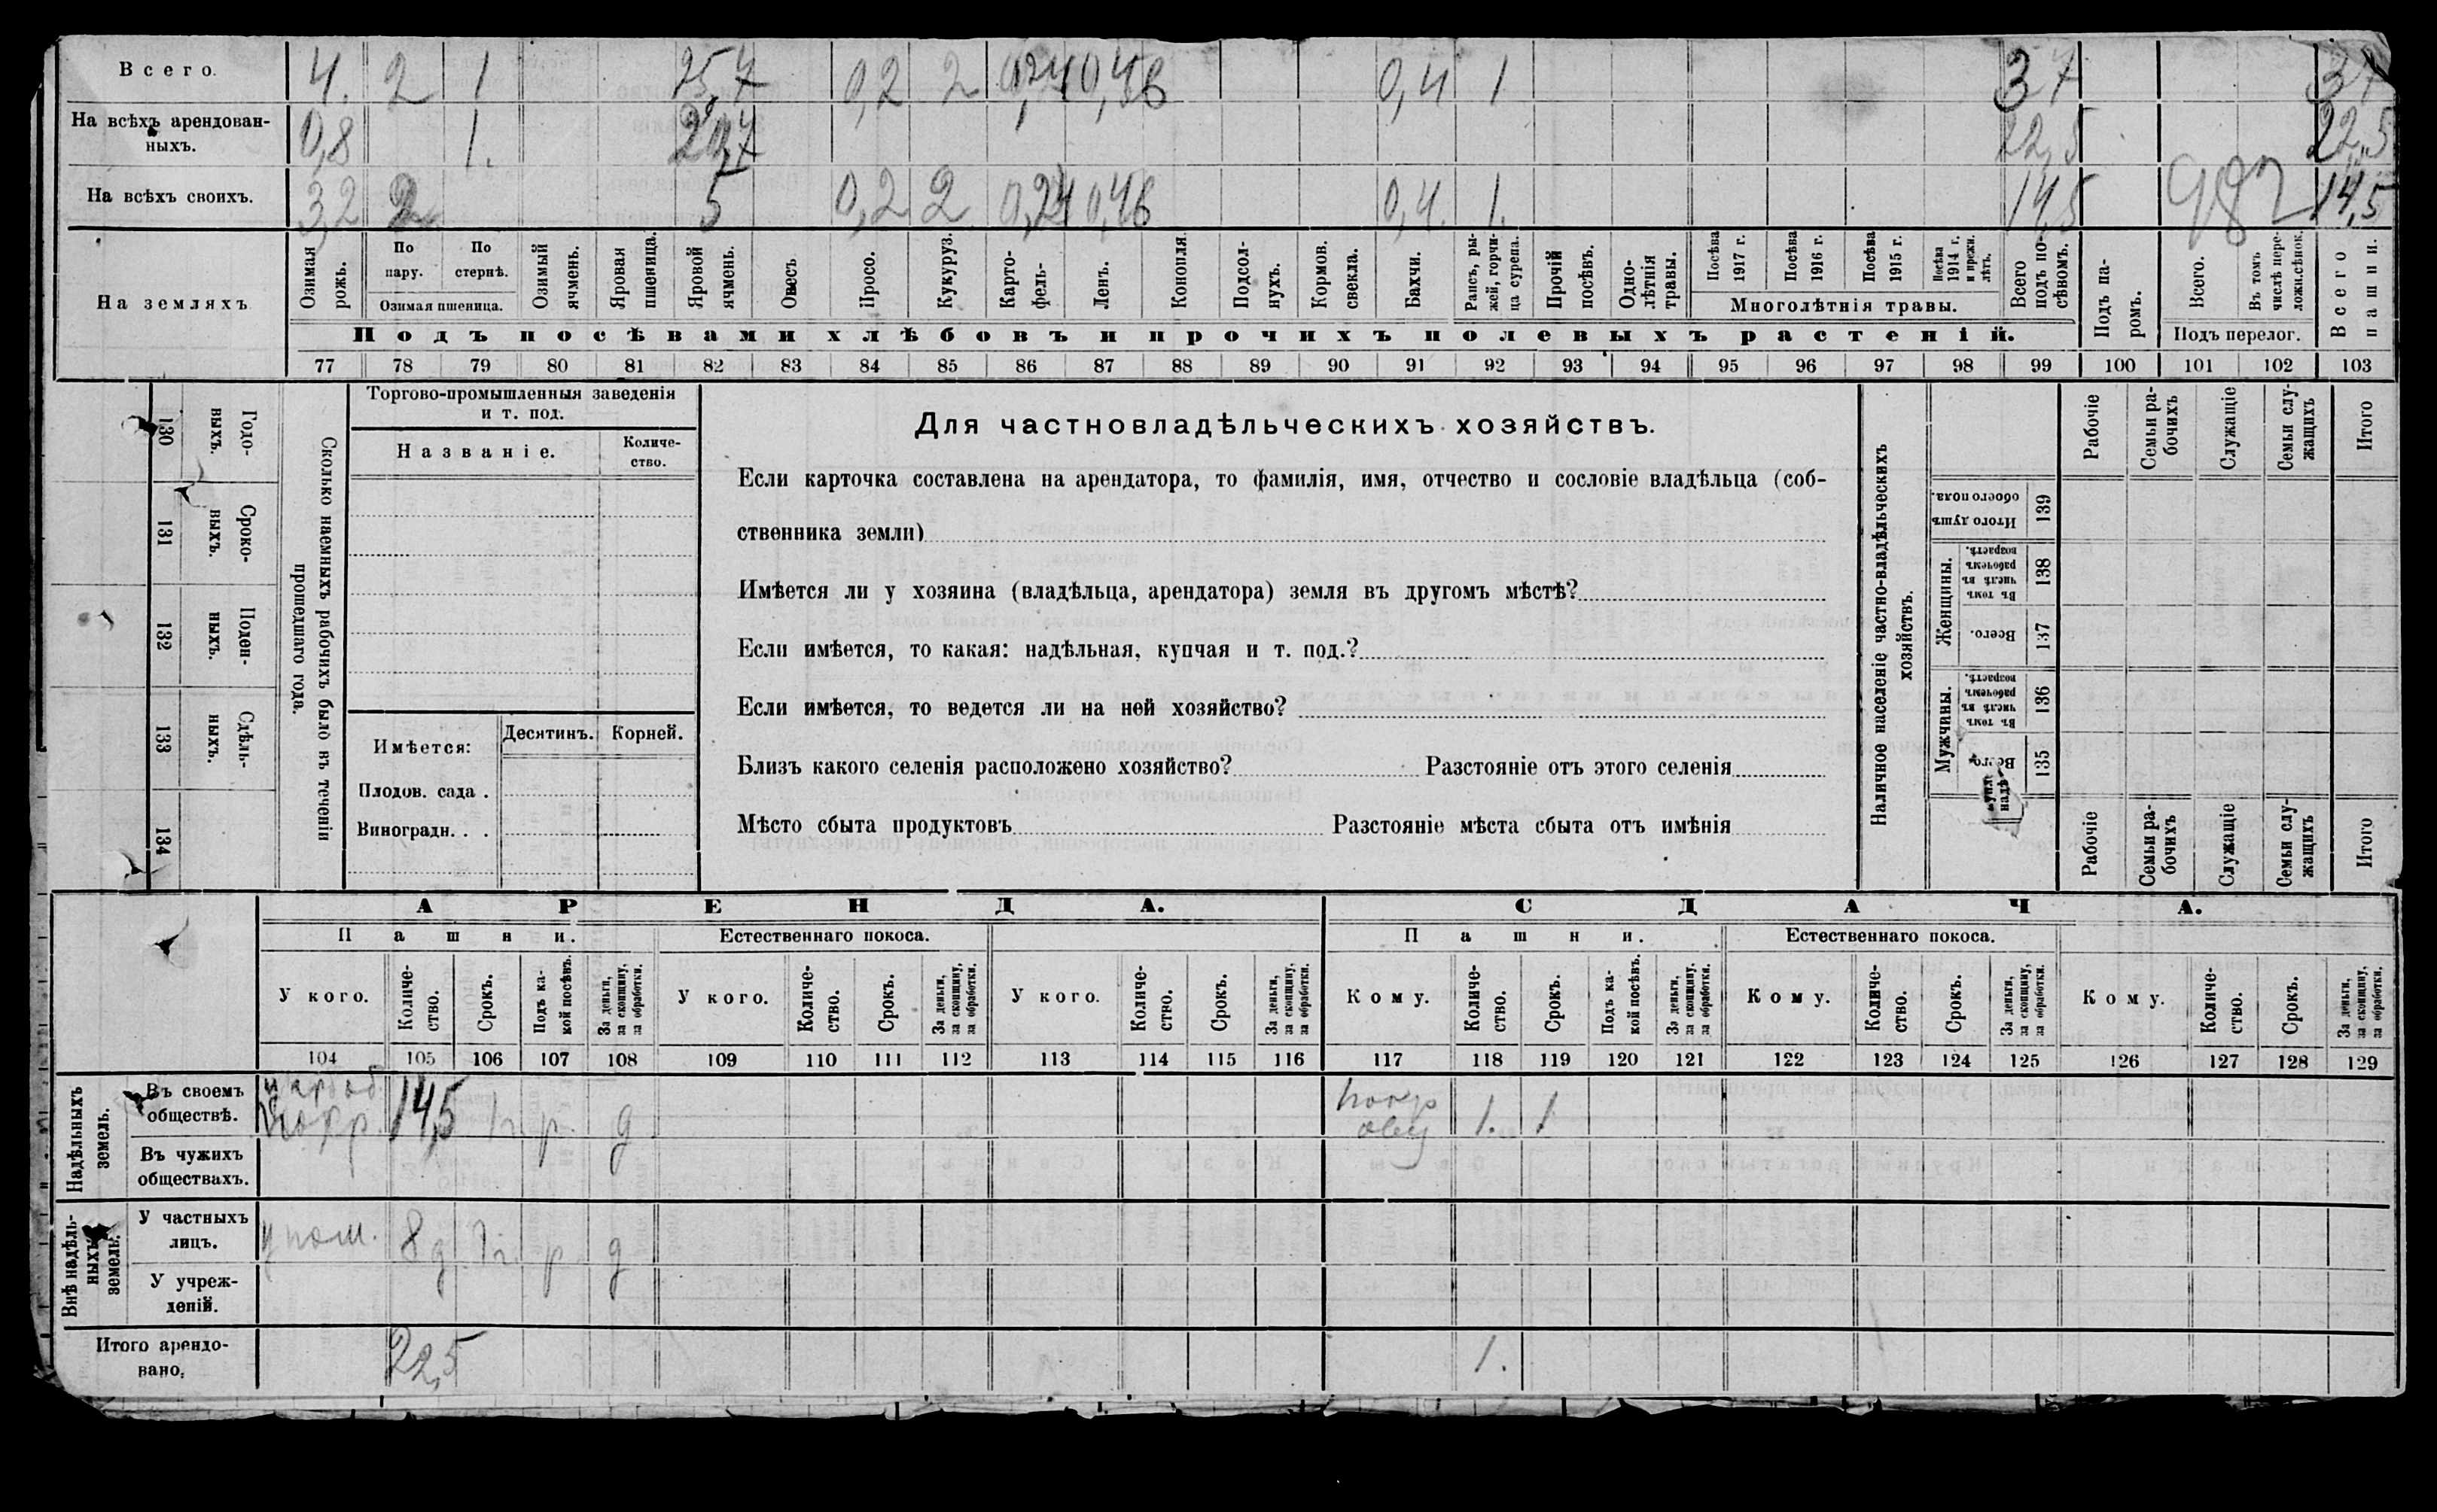 Всего. 4. 2 1 25,7 0,2 2 0,24 0,46 0,4 1 37 37
На всѣхъ арендован-
ныхъ. 0,8 1. 20,7 22,5 22,5
На всѣхъ своихъ. 3,2 2 5 0,2 2 0,24 0,46 0,4. 1. 14,5 982 14,5
На земляхъ
Озимая рожь.
По пару.
По стернѣ.
Озимая пшеница.
Озимый ячмень.
Яровая пшеница.
Яровой ячмень.
Овесъ
Просо.
Кукуруз.
Карто-
фель-
Ленъ.
Конопля.
Подсол-
нухъ.
Кормов.
свекла.
Бахчи.
Рапсъ, ры-
жей, горчи-
ца сурепа.
Прочій
посѣвъ.
Одно-
лѣтнія
травы.
Посѣва
1917 г.
Посѣва
1916 г.
Посѣва
1915 г.
Посѣва
1914 г.
и прежн.
лѣтъ.
Многолѣтнія травы.
Всего
подъ по-
сѣвомъ.
Подъ па-
ромъ.
Всего.
Въ томъ
числѣ пере-
ложн.сѣнок.
Подъ перелог.
Всего
пашни.
Подъ посѣвами хлѣбовъ и прочихъ полевыхъ растеній.
77 78 79 80 81 82 83 84 85 86 87 88 89 90 91 92 93 94 95 96 97 98 99 100 101 102 103
130 Годо-
выхъ.
131 Сроко-
выхъ.
132 Поден-
ныхъ.
133 Сдѣль-
ныхъ.
134
Сколько наемныхъ рабочихъ было въ теченіи
прошедшаго года.
Торгово-промышленныя заведенія
и т. под.
Названіе.
Количе-
ство.
Имѣется:
Десятинъ. Корней.
Плодов. сада .
Виноградн. . .
Для частновладѣльческихъ хозяйствъ.
Если карточка составлена на арендатора, то фамилія, имя, отчество и сословіе владѣльца (соб-
ственника земли)
Имѣется ли у хозяина (владѣльца, арендатора) земля въ другомъ мѣстѣ?
Если имѣется, то какая: надѣльная, купчая и т. под.?
Если имѣется, то ведется ли на ней хозяйство?
Близъ какого селенія расположено хозяйство? Разстояніе отъ этого селенія
Мѣсто сбыта продуктовъ Разстояніе мѣста сбыта отъ имѣнія
Наличное населеніе частно-владѣльческихъ
хозяйствъ.
Рабочіе
Семьи ра-
бочихъ
Служащіе
Семьи слу-
жащихъ
Итого
Итого душъ
обоего пола.
139
Женщины.
Въ томъ
числѣ въ
рабочемъ
возрастѣ.
138
Всего.
137
Мужчины.
Въ томъ
числѣ въ
рабочемъ
возрастѣ.
136
Всего.
135
Рабочіе
Семьи ра-
бочихъ
Служащіе
Семьи слу-
жащихъ
Итого
АРЕНДА. СДАЧА.
Пашни. Естественнаго покоса. Пашни. Естественнаго покоса.
У кого.
Количе-
ство.
Срокъ.
Подъ ка-
кой посѣвъ.
За деньги,
за скопщину,
за обработки.
У кого.
Количе-
ство.
Срокъ.
За деньги,
за скопщину,
за обработки.
У кого.
Количе-
ство.
Срокъ.
За деньги,
за скопщину,
за обработки.
Кому.
Количе-
ство.
Срокъ.
Подъ ка-
кой посѣвъ.
За деньги,
за скопщину,
за обработки.
Кому.
Количе-
ство.
Срокъ.
За деньги,
за скопщину,
за обработки.
Кому.
Количе-
ство.
Срокъ.
За деньги,
за скопщину,
за обработки.
104 105 106 107 108 109 110 111 112 113 114 115 116 117 118 119 120 121 122 123 124 125 126 127 128 129
Надѣльныхъ
земель.
Въ своемъ
обществѣ. 14,5 р. д 1. 1
Въ чужихъ
обществахъ.
Внѣ надѣль-
ныхъ
земель.
У частныхъ
лицъ. у пом. 8 д. р д
У учреж-
деній.
Итого арендо-
вано. 22,5 1.